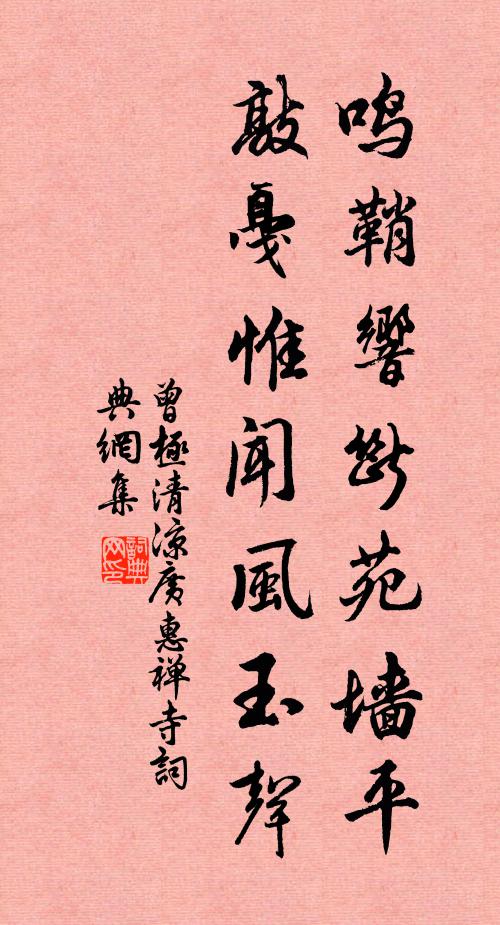 鸣鞘響斷苑墙平
敲戛惟闻風玉聲
曾極清涼廣惠禅寺詞
典網集
詞典
网印